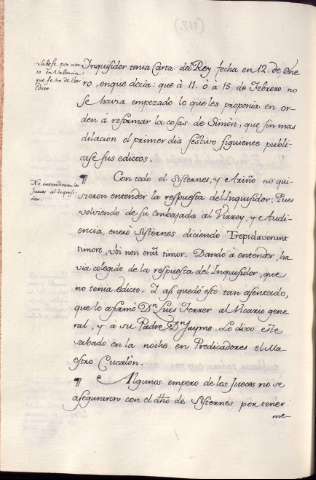 Inquisidor tenia Carta del Rey fecha en 12 de Ene
ro, en que decia: que à 11. ò à 15 de Febrero no
se havra empezado lo que les proponia en or-
den à reformar la cosas de Simòn; que sin mas
dilacion el primer dia festivo siguiente publi-
case sus edictos.
¶ Con todo el Sisternes, y Ariño no qui-
sieron entender la respuesta del Inquisidor. Pues
volviendo de su embajada al Virrey, y Audi-
encia, entrò Sisternes diciendo Trepidaverunt
timore, ubi non erat timor. Dando à entender, ha-
via colegido de la respuesta del Inquisidor, que
no tenia edicto. I asi quedò esto tan asentado,
que lo afirmò Dn. Luis Ferrer al Vicario gene-
ral, y a su Padre Dn. Jayme. Lo dixo este
sabado en la noche en Predicadores el Ma-
estro Cucalòn.
¶ Algunos empero de los Jueces no se
aseguraron con el dho de Sisternes por tener
No entendieron los
Jueces al Inquisi-
dor.